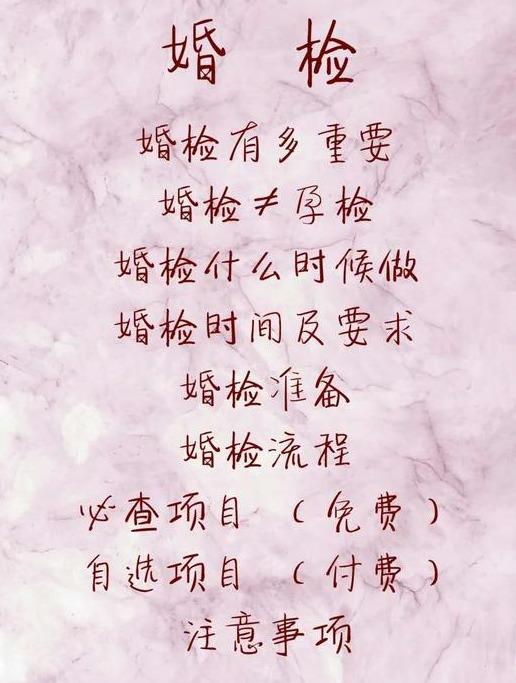 婚 检
婚检有多重要
婚检≠孕检
婚检什么时候做
婚检时间及要求
婚检准备
婚检流程
必查项目 (免费)
自选项目 (付费)
注意事项